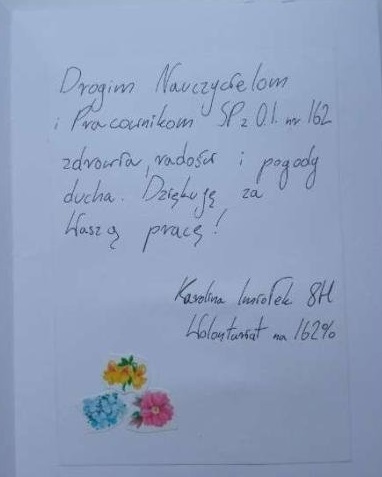 Drogim Nauczycielom
i Pracownikom SP z O.I. nr 162
zdrowia, radości i pogody
ducha. Dziękuję za
Waszą pracę!
Karolina 8H
Wolontariat na 162%